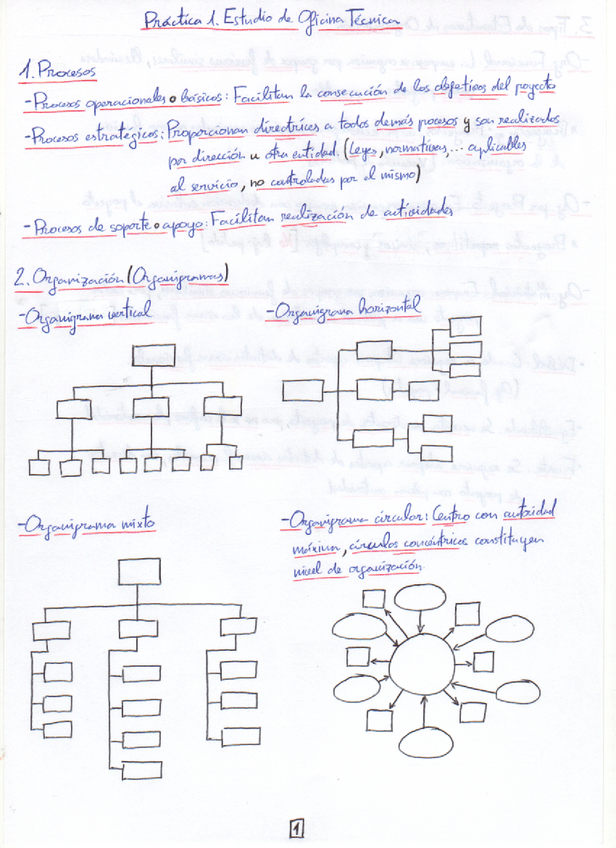 Práctica 1. Estudio de Oficina Técnica
1. Procesos
- Procesos operacionales o básicos: Facilitan la consecución de los objetivos del proyecto
- Procesos estratégicos: Proporcionan directrices a todos demás procesos y son realizados
por dirección u otra entidad. (Leyes, normativas,... aplicables
al servicio, no controladas por el mismo)
- Procesos de soporte o apoyo: Facilitan realización de actividades
2. Organización (Organigramas)
- Organigrama vertical
- Organigrama horizontal
- Organigrama mixto
- Organigrama circular: Centro con autoridad
máxima, círculos concéntricos constituyen
nivel de organización.
1